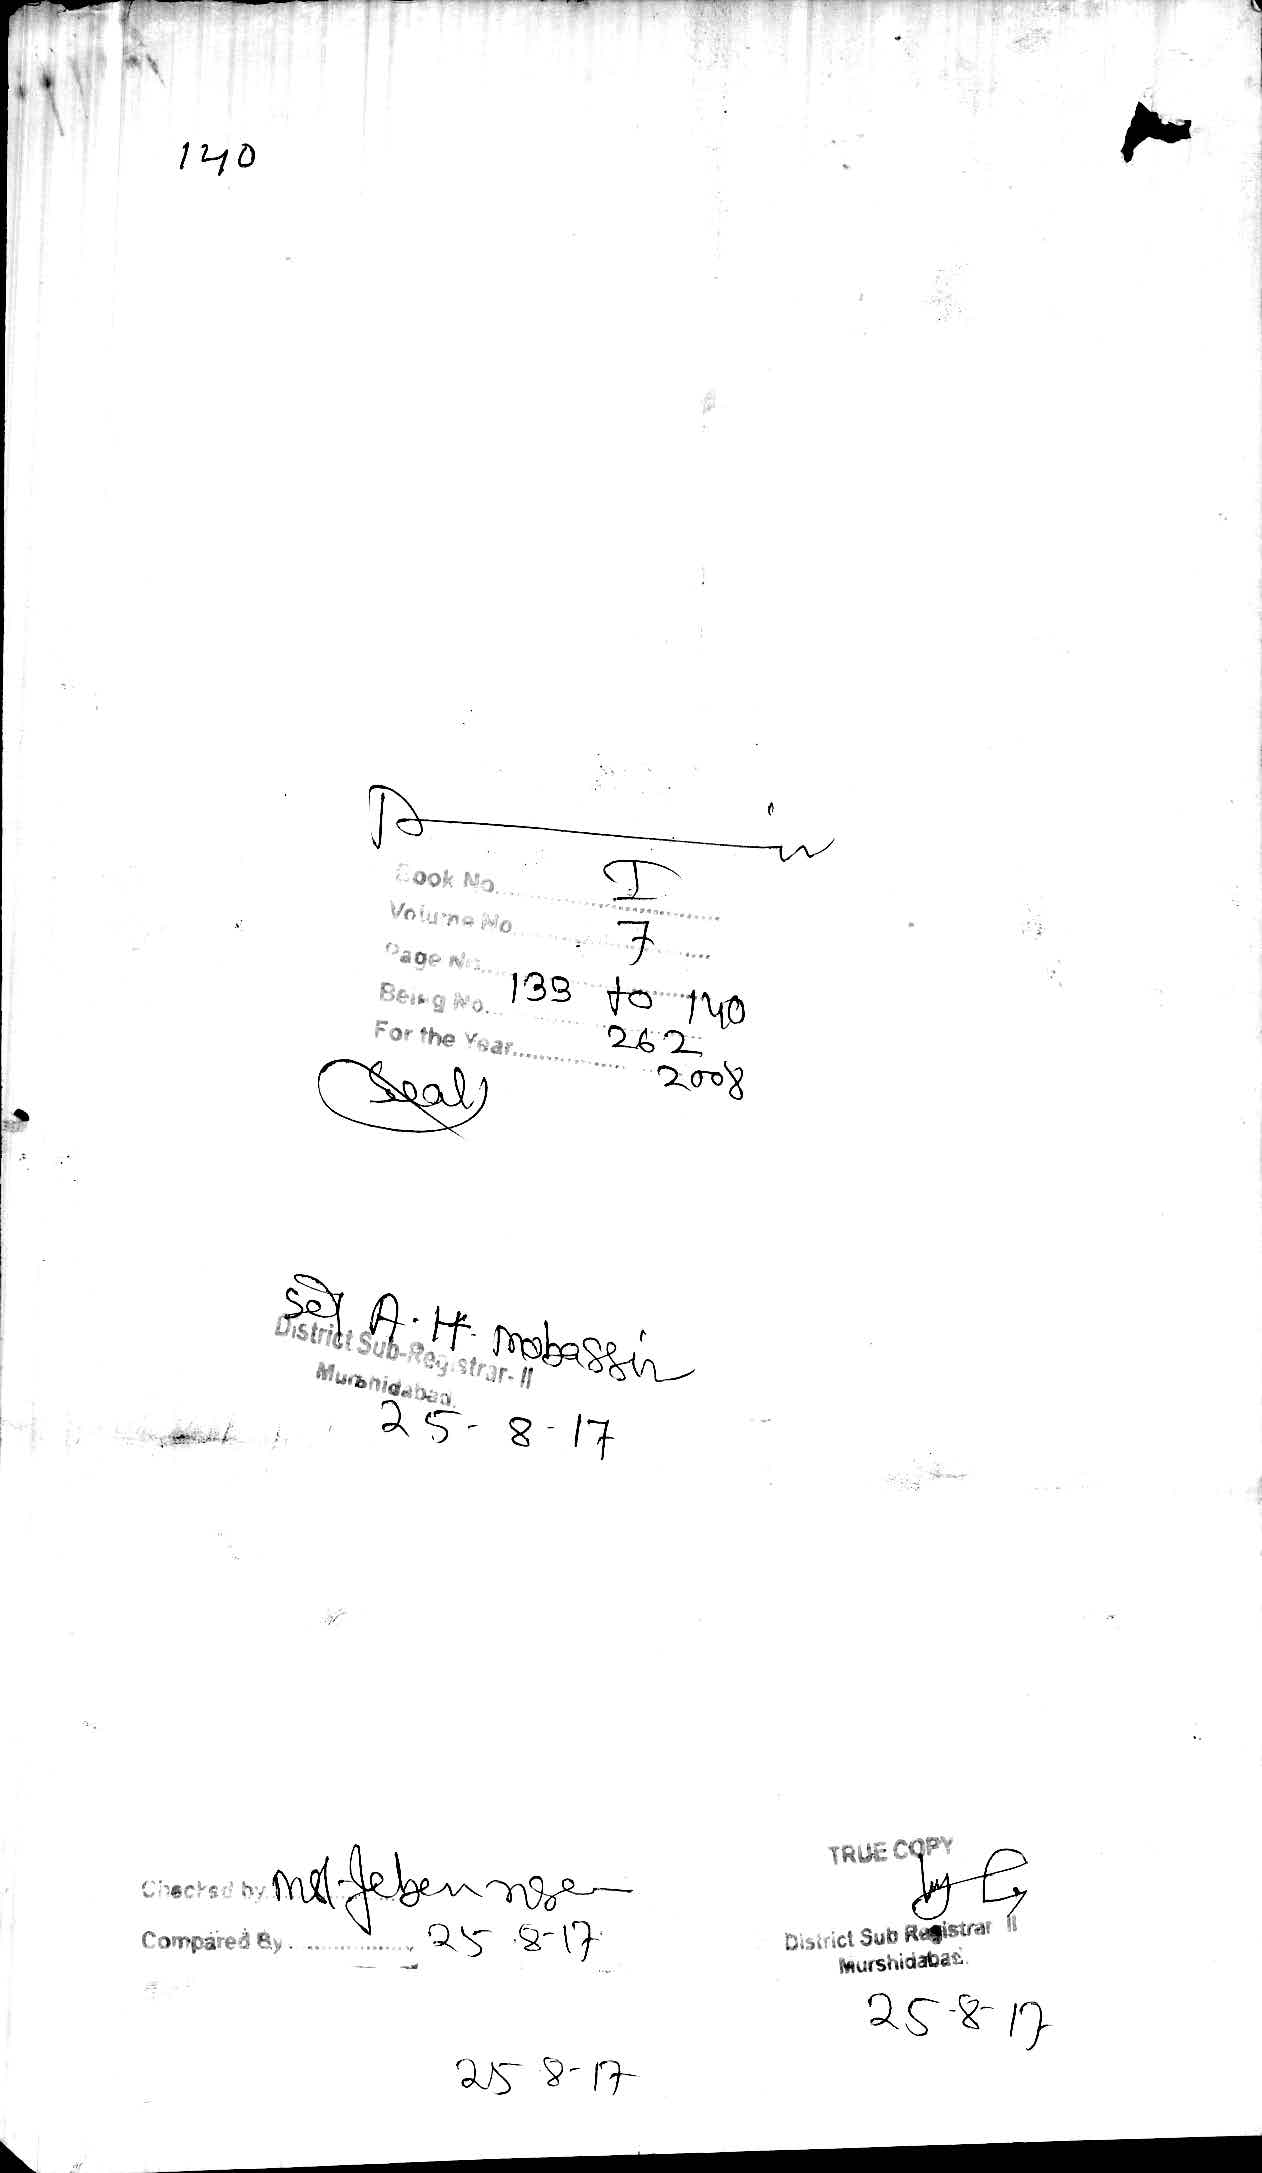 140
Book No. I
Volume No. 7
Page No. 133 to 140
Being No. 262
For the Year 2008
Seal
Sd/ A. H. Mobassir
District Sub-Registrar-II
Murshidabad.
25-8-17
Checked by Md.
Compared By 25-8-17
TRUE COPY
District Sub Registrar II
Murshidabad.
25-8-17
25 8-17